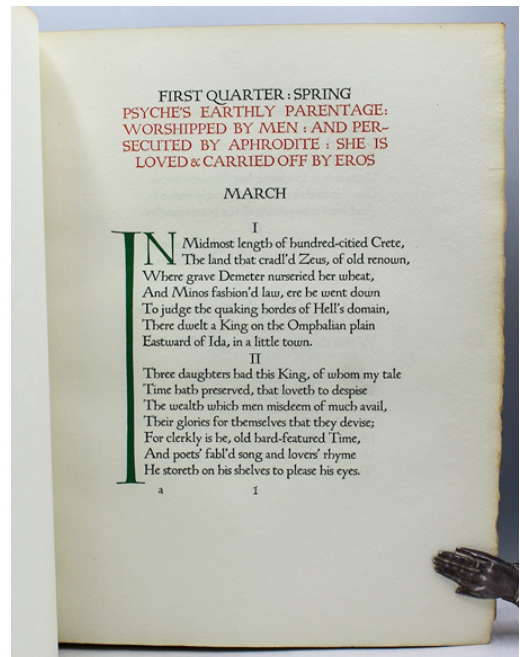 FIRST QUARTER : SPRING
PSYCHE'S EARTHLY PARENTAGE:
WORSHIPPED BY MEN : AND PER-
SECUTED BY APHRODITE : SHE IS
LOVED & CARRIED OFF BY EROS
MARCH
I
IN Midmost length of hundred-citied Crete,
The land that cradl'd Zeus, of old renown,
Where grave Demeter nurseried her wheat,
And Minos fashion'd law, ere he went down
To judge the quaking hordes of Hell's domain,
There dwelt a King on the Omphalian plain
Eastward of Ida, in a little town.
II
Three daughters had this King, of whom my tale
Time hath preserved, that loveth to despise
The wealth which men misdeem of much avail,
Their glories for themselves that they devise;
For clerkly is he, old hard-featured Time,
And poets' fabl'd song and lovers' rhyme
He storeth on his shelves to please his eyes.
a 1